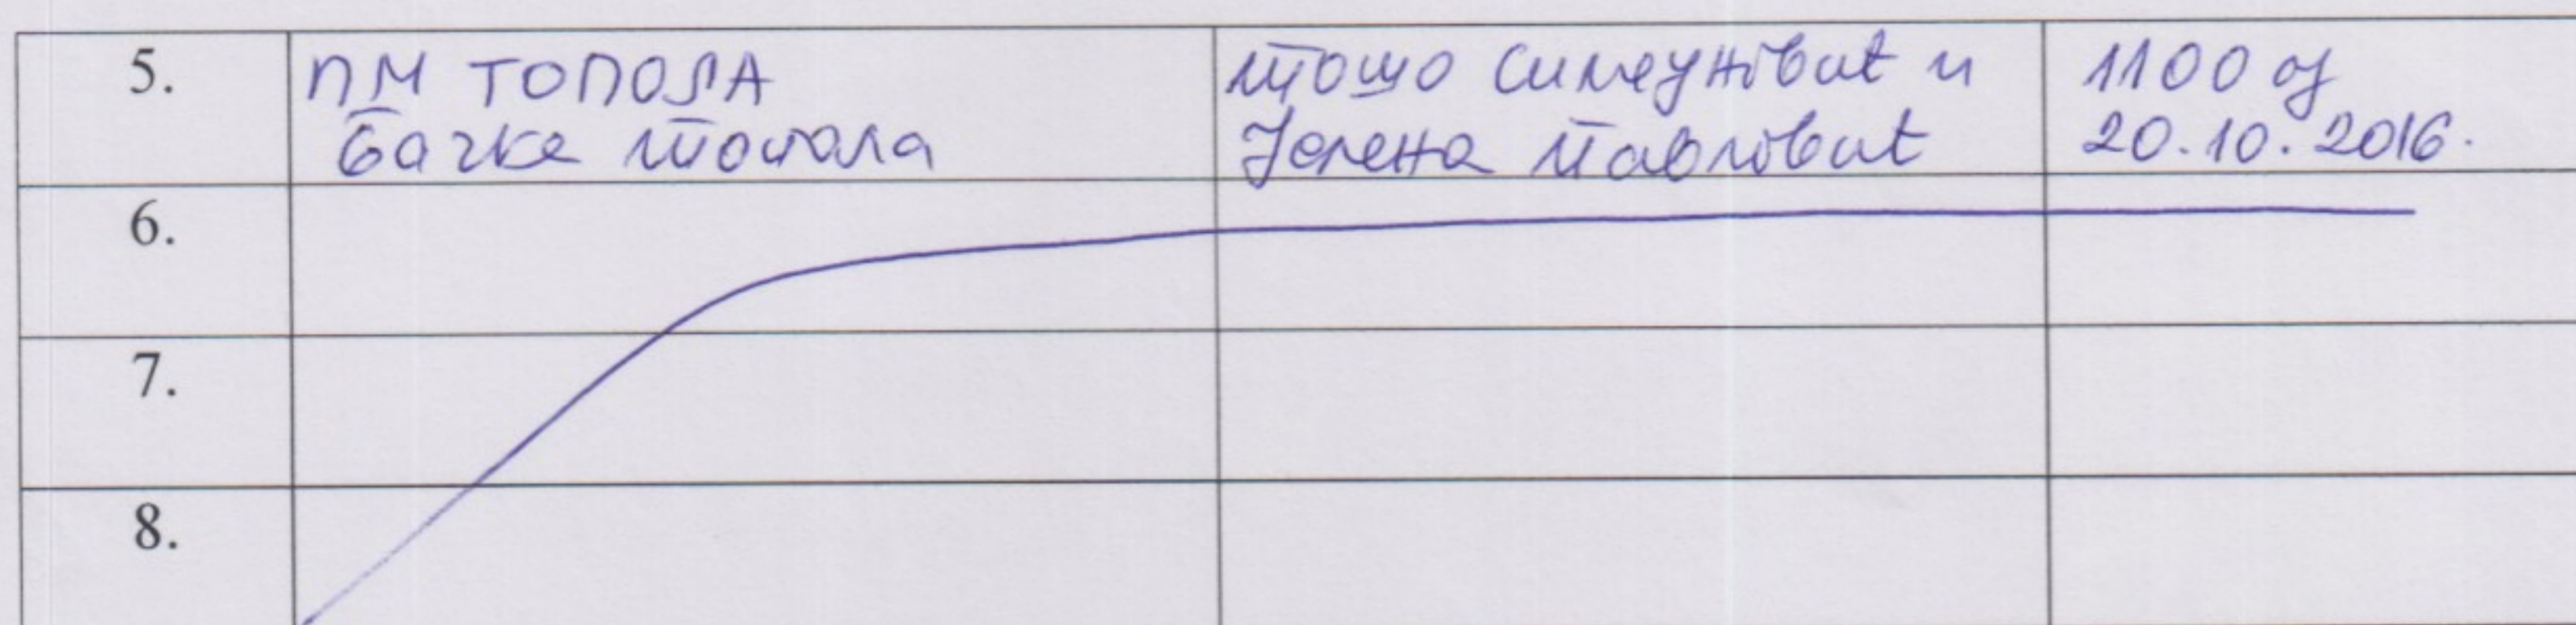 5.
ПМ ТОПОЛА
Бачка Топола
Тошо Симеуновић и
Јелена Павловић
1100 од
20.10.2016.
6.
7.
8.